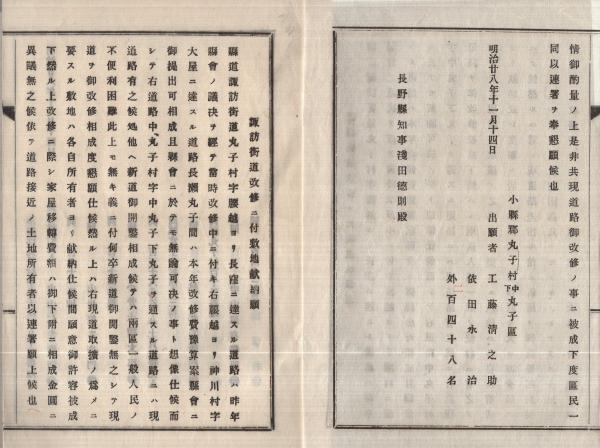 情御酌量ノ上是非共現道路御改修ノ事ニ被成下度區民一
同以連署ヲ奉懇願候也
明治廿八年十一月十四日
小縣郡丸子村中下丸子區
出願者 工藤淸之助
依田永治
外百四十八名
長野縣知事淺田德則殿
諏訪街道改修ニ付敷地献納願
縣道諏訪街道丸子村字腰越ヨリ長窪ニ達スル道路ハ昨年
縣會ノ議决ヲ經テ當時改修中ニ付キ右腰越ヨリ神川村字
大屋ニ達スル道路長瀨丸子間ハ本年改修費豫算案縣會ニ
御提出可相成且縣會ニ於テモ無論可决ノ事ト想像仕候而
シテ右道路中丸子村字中丸子下丸子ヲ通スル道路ニハ現
道路有之候處他ヘ新道御開鑿相成候テハ兩區一般人民ノ
不便利困難此上モ無キ義ニ付何卒新道御開鑿無之シテ現
道ヲ御改修相成度懇願仕候然ル上ハ右現道取擴ノ爲メニ
要スル敷地ハ各自所有者ヨリ献納仕候間願意御許容被成
下然ル上改修ニ際シ家屋移轉費額ハ御下附ニ相成金圓ニ
異議無之候依テ道路接近ノ土地所有者以連署願上候也